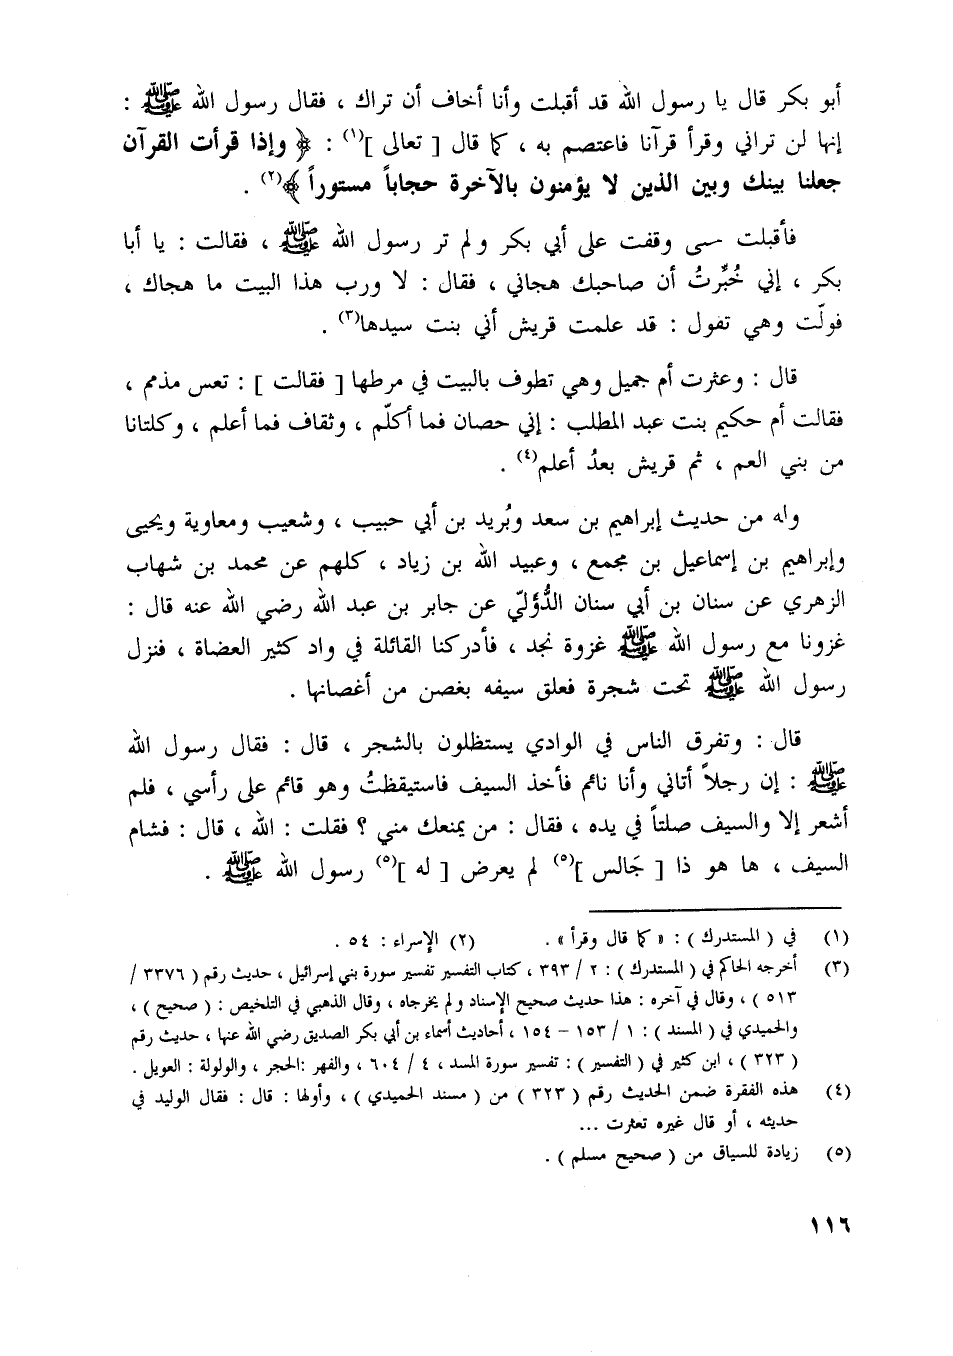 أبو بكر قال يا رسول الله قد أقبلت وأنا أخاف أن تراك ، فقال رسول الله ﷺ :
إنها لن تراني وقرأ قرآنا فاعتصم به ، كما قال [ تعالى ](١) : ﴿ وإذا قرأت القرآن
جعلنا بينك وبين الذين لا يؤمنون بالآخرة حجاباً مستوراً ﴾(٢) .
فأقبلت حتى وقفت على أبي بكر ولم تر رسول الله ﷺ ، فقالت : يا أبا
بكر ، إني خُبِّرتُ أن صاحبك هجاني ، فقال : لا ورب هذا البيت ما هجاك ،
فولّت وهي تقول : قد علمت قريش أني بنت سيدها(٣) .
قال : وعثرت أم جميل وهي تطوف بالبيت في مرطها [ فقالت ] : تعس مذمم ،
فقالت أم حكيم بنت عبد المطلب : إني حصان فما أكلّم ، وثقاف فما أعلم ، وكلتانا
من بني العم ، ثم قريش بعدُ أعلم(٤) .
وله من حديث إبراهيم بن سعد وبُريد بن أبي حبيب ، وشعيب ومعاوية ويحيى
وإبراهيم بن إسماعيل بن مجمع ، وعبيد الله بن زياد ، كلهم عن محمد بن شهاب
الزهري عن سنان بن أبي سنان الدُّؤَليّ عن جابر بن عبد الله رضي الله عنه قال :
غزونا مع رسول الله ﷺ غزوة نجد ، فأدركنا القائلة في واد كثير العضاة ، فنزل
رسول الله ﷺ تحت شجرة فعلق سيفه بغصن من أغصانها .
قال : وتفرق الناس في الوادي يستظلون بالشجر ، قال : فقال رسول الله
ﷺ : إن رجلاً أتاني وأنا نائم فأخذ السيف فاستيقظتُ وهو قائم على رأسي ، فلم
أشعر إلا والسيف صلتاً في يده ، فقال : من يمنعك مني ؟ فقلت : الله ، قال : فشام
السيف ، ها هو ذا [ جَالس ](٥) لم يعرض [ له ](٥) رسول الله ﷺ .
(١) في ( المستدرك ) : « كما قال وقرأ » . (٢) الإسراء : ٥٤ .
(٣) أخرجه الحاكم في ( المستدرك ) : ٢ / ٣٩٣ ، كتاب التفسير تفسير سورة بني إسرائيل ، حديث رقم ( ٣٣٧٦ /
٥١٣ ) ، وقال في آخره : هذا حديث صحيح الإسناد ولم يخرجاه ، وقال الذهبي في التلخيص : ( صحيح ) ،
والحميدي في ( المسند ) : ١ / ١٥٣ – ١٥٤ ، أحاديث أسماء بن أبي بكر الصديق رضي الله عنها ، حديث رقم
( ٣٢٣ ) ، ابن كثير في ( التفسير ) : تفسير سورة المسد ، ٤ / ٦٠٤ ، والفهر :الحجر ، والولولة : العويل .
(٤) هذه الفقرة ضمن الحديث رقم ( ٣٢٣ ) من ( مسند الحميدي ) ، وأولها : قال : فقال الوليد في
حديثه ، أو قال غيره تعثرت ...
(٥) زيادة للسياق من ( صحيح مسلم ) .
١١٦